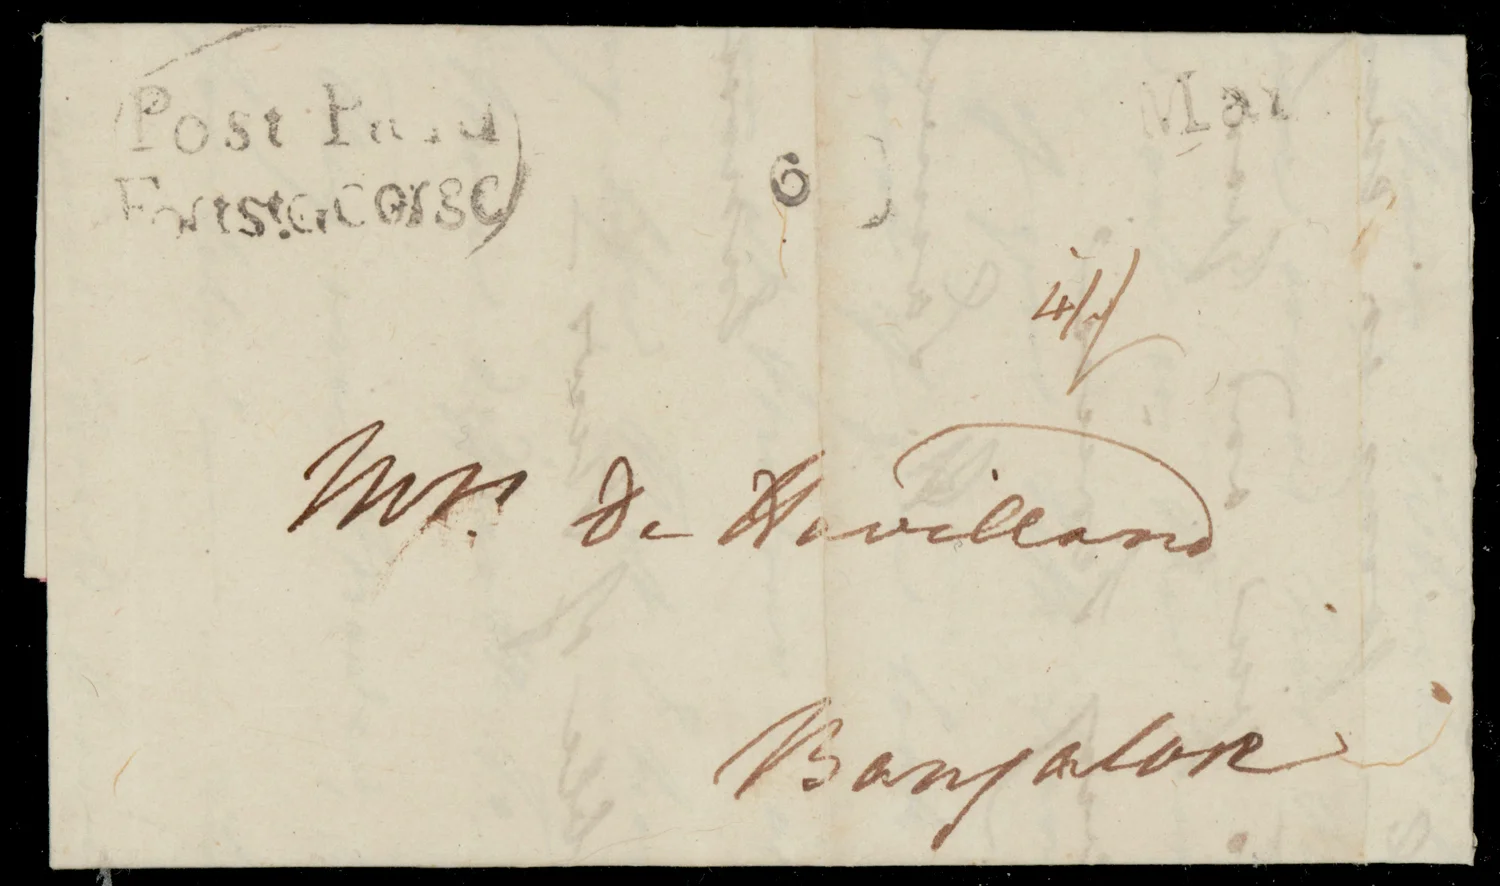 Post Paid
Fort St. G
6
Mar
4/
Mrs. De Havilland
Bangalore